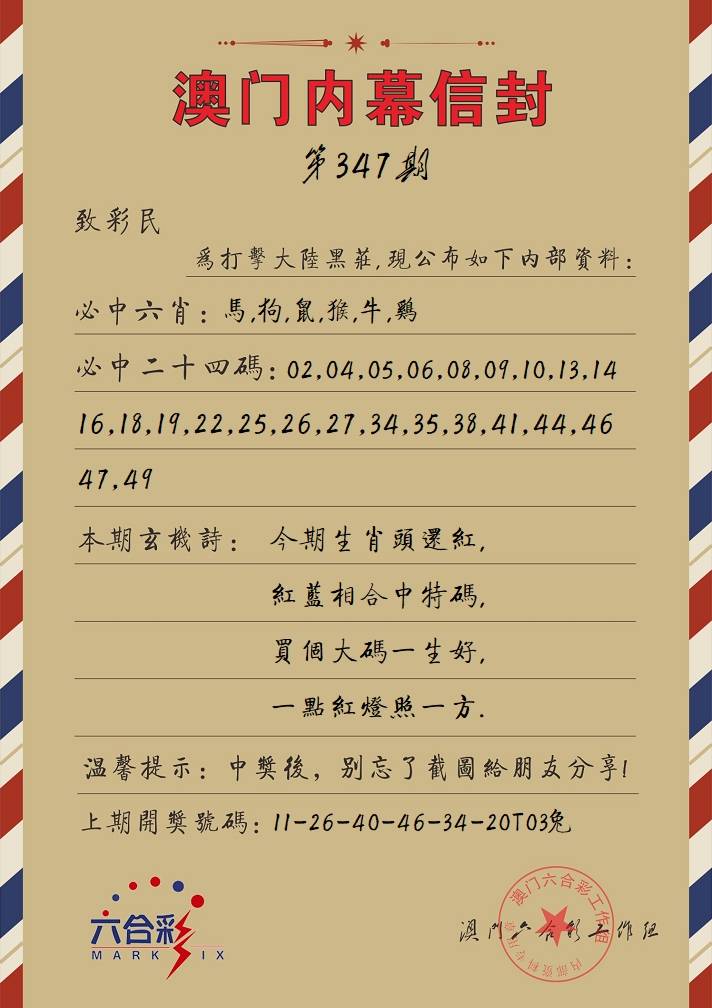 澳门内幕信封
第347期
致彩民
為打擊大陸黑莊,現公布如下内部資料:
必中六肖:馬,狗,鼠,猴,牛,鷄
必中二十四碼:02,04,05,06,08,09,10,13,14
16,18,19,22,25,26,27,34,35,38,41,44,46
47,49
本期玄機詩: 今期生肖頭還紅,
紅藍相合中特碼,
買個大碼一生好,
一點紅燈照一方.
温馨提示:中獎後,别忘了截圖給朋友分享!
上期開獎號碼:11-26-40-46-34-20T03兔
六合彩
MARK SIX
澳门六合彩工作组
澳门六合彩工作组
内部资料专用章